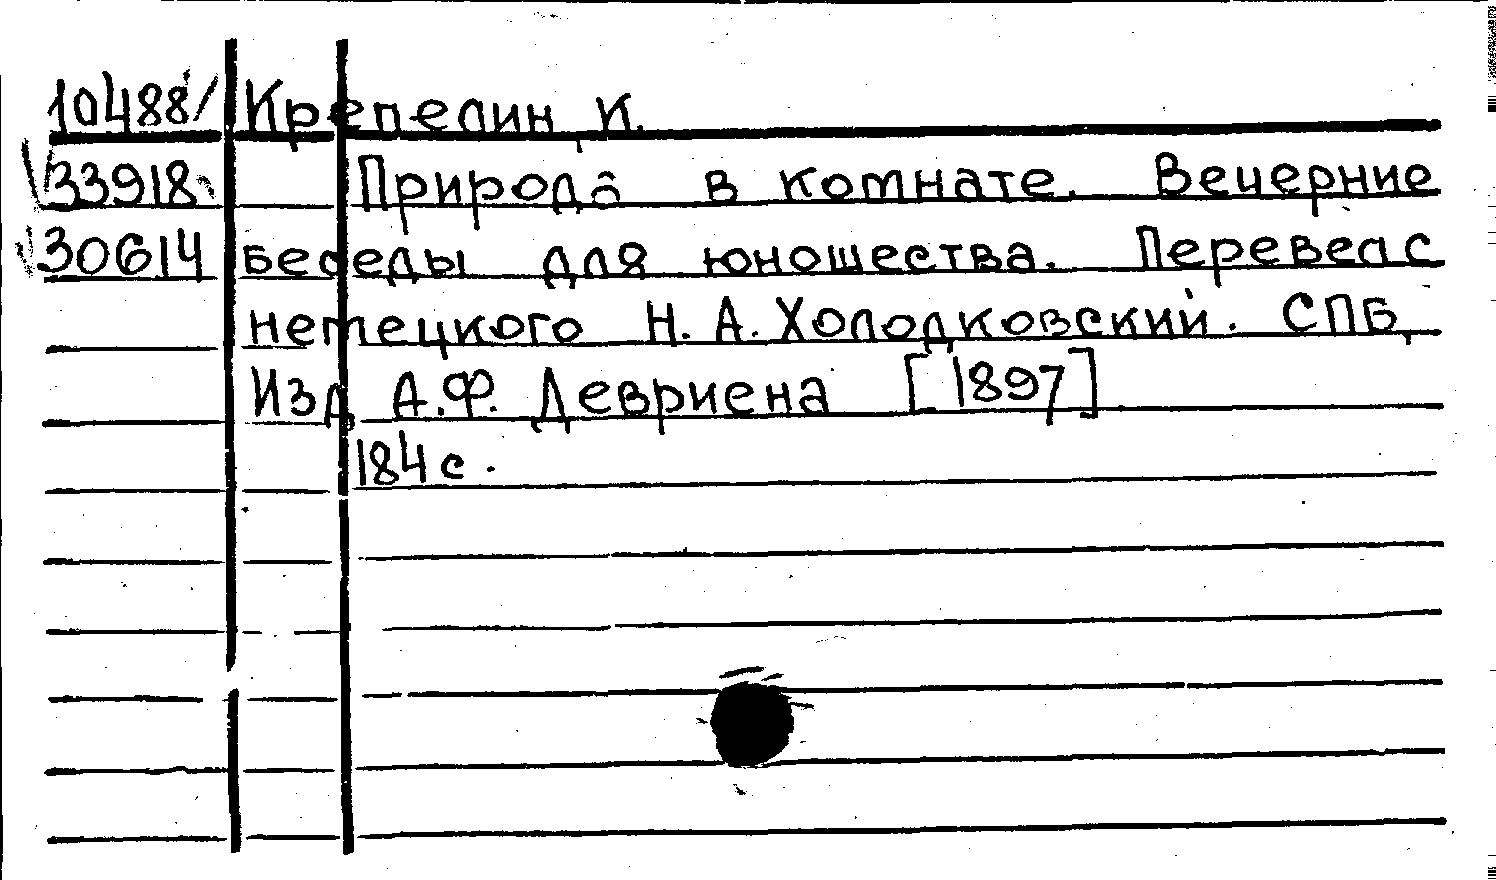 10488/ Крепелин К.
33918 Природа в комнате. Вечерние
30614 беседы для юношества. Перевел с
немецкого Н. А. Холодковский. СПБ,
Изд А.Ф. Девриена [1897]
184 с.